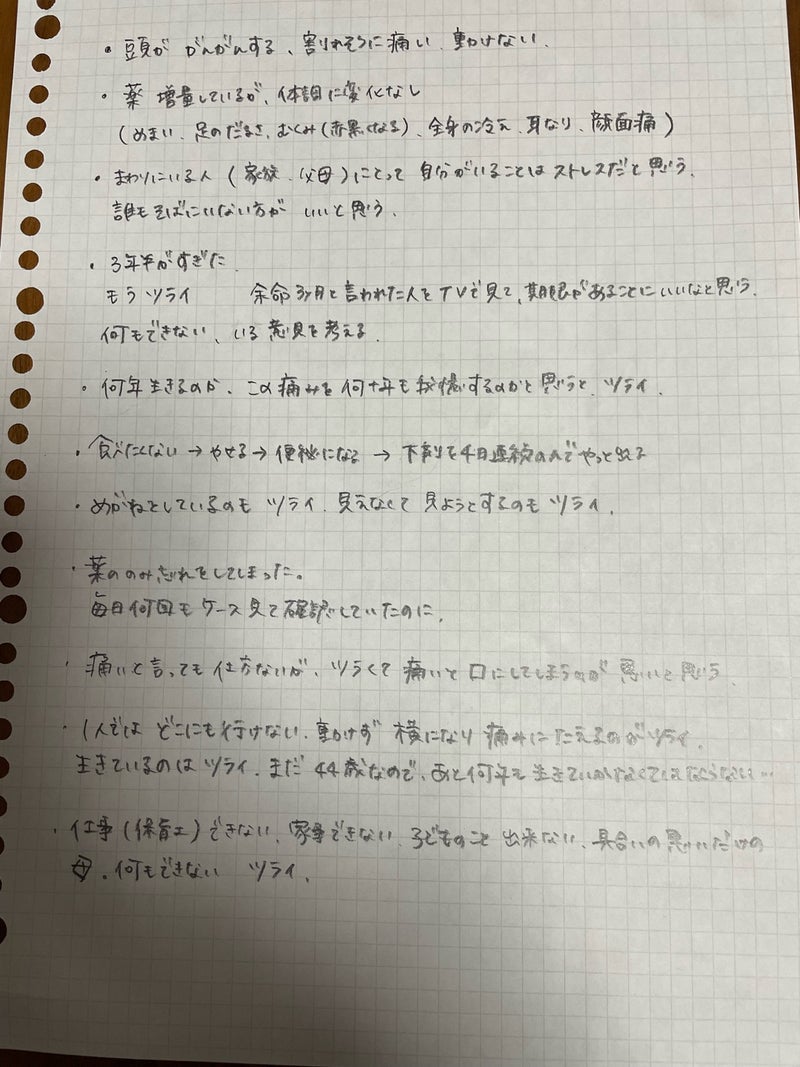 ・頭が がんがんする、割れそうに痛い、動けない、
・薬 増量しているが、体調に変化なし
(めまい、足のだるさ、むくみ(赤黒くなる)、全身の冷え、耳なり、顔面痛)
・まわりにいる人(家族、父母)にとって 自分がいることはストレスだと思う、
誰もそばにいない方が いいと思う、
・3年半がすぎた、
もうツライ 余命3ヶ月と言われた人をTVで見て、期限があることにいいなと思う、
何もできない、いる意味を考える、
・何年生きるのか、この痛みを何十年も我慢するのかと思うと、ツライ、
・食べたくない→やせる→便秘になる→下剤を4日連続のんでやっと出る
・めがねをしているのも ツライ、見えなくて 見ようとするのも ツライ、
・薬ののみ忘れをしてしまった。
毎日何回もケース見て確認していたのに、
・痛いと言っても仕方ないが、ツラくて 痛いと 口にしてしまうのが 悪いと思う、
・1人では どこにも行けない、動けず 横になり 痛みにたえるのがツライ、
生きているのは ツライ、まだ44歳なので、あと何年も生きていかなくてはならない…
・仕事(保育士)できない、家事できない、子どものこと 出来ない、具合いの悪いだけの
母、何もできない ツライ、